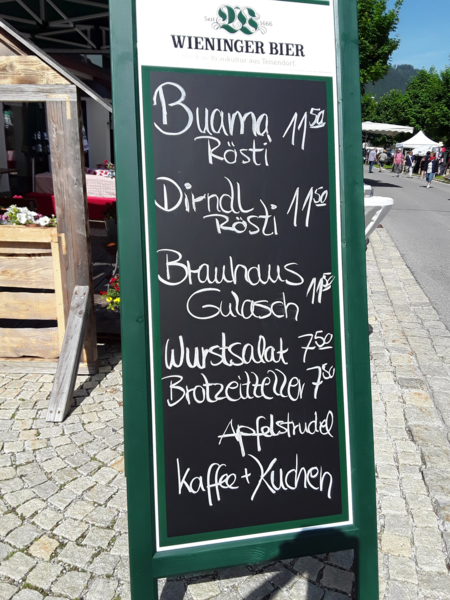 Seit 1666
WIENINGER BIER
Braukultur aus Teisendorf
Buama 11 50
Rösti
Dirndl 11 50
Rösti
Brauhaus
Gulasch 11 50
Wurstsalat 7 50
Brotzeitteller 7 80
Apfelstrudel
Kaffee + Kuchen